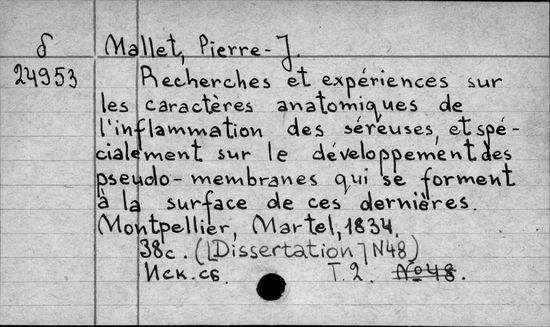 δ Mallet, Pierre-J.
24953 Recherches et expériences sur
les caractères anatomiques de
l'inflammation des séreuses, et spé-
cialement sur le développement des
pseudo-membranes qui se forment
à la surface de ces dernières.
Montpellier, Martel, 1834.
38c. ([Dissertation] N48)
Иск.сб. Т.2. №48.